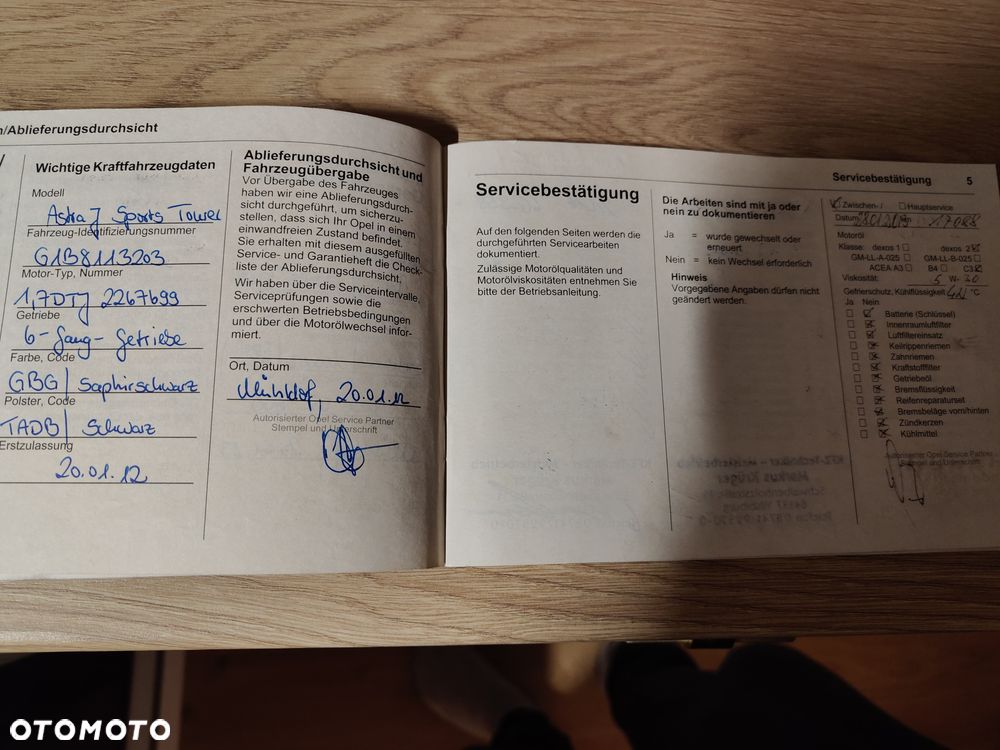 /Ablieferungsdurchsicht
Wichtige Kraftfahrzeugdaten
Modell
Astra J Sports Tourer
Fahrzeug-Identifizierungsnummer
G1B8113203
Motor-Typ, Nummer
1,7DTJ 2267699
Getriebe
6-Gang-Getriebe
Farbe, Code
GBG / Saphirschwarz
Polster, Code
TADB / Schwarz
Erstzulassung
20.01.12
Ablieferungsdurchsicht und
Fahrzeugübergabe
Vor Übergabe des Fahrzeuges
haben wir eine Ablieferungsdurch-
sicht durchgeführt, um sicherzu-
stellen, dass sich Ihr Opel in einem
einwandfreien Zustand befindet.
Sie erhalten mit diesem ausgefüllten
Service- und Garantieheft die Check-
liste der Ablieferungsdurchsicht.
Wir haben über die Serviceintervalle,
Serviceprüfungen sowie die
erschwerten Betriebsbedingungen
und über die Motorölwechsel infor-
miert.
Ort, Datum
Mühldorf, 20.01.12
Autorisierter Opel Service Partner
Stempel und Unterschrift
Servicebestätigung
Auf den folgenden Seiten werden die
durchgeführten Servicearbeiten
dokumentiert.
Zulässige Motorölqualitäten und
Motorölviskositäten entnehmen Sie
bitte der Betriebsanleitung.
Die Arbeiten sind mit ja oder
nein zu dokumentieren
Ja = wurde gewechselt oder
erneuert
Nein = kein Wechsel erforderlich
Hinweis
Vorgegebene Angaben dürfen nicht
geändert werden.
Servicebestätigung 5
Zwischen- / Hauptservice
Datum
Motoröl
Klasse: dexos 1 dexos 2
GM-LL-A-025 GM-LL-B-025
ACEA A3 B4 C3
Viskosität: 5 W- 30
Gefrierschutz, Kühlflüssigkeit °C
Ja Nein
Batterie (Schlüssel)
Innenraumluftfilter
Luftfiltereinsatz
Keilrippenriemen
Zahnriemen
Kraftstofffilter
Getriebeöl
Bremsflüssigkeit
Reifenreparaturset
Bremsbeläge vorn/hinten
Zündkerzen
Kühlmittel
Autorisierter Opel Service Partner
Stempel und Unterschrift
OTOMOTO